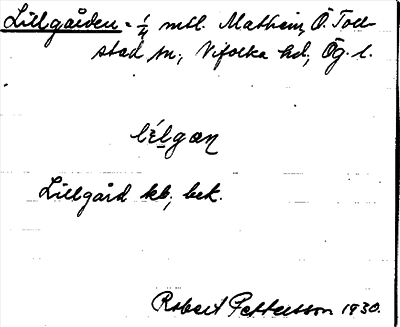 Lillgården = 1/4 mtl. Mathem, Ö. Toll-
stad sn., Vifolka hd., Ög. l.
lélgæn
Lillgård kb., bek.
Robert Pettersson 1930.